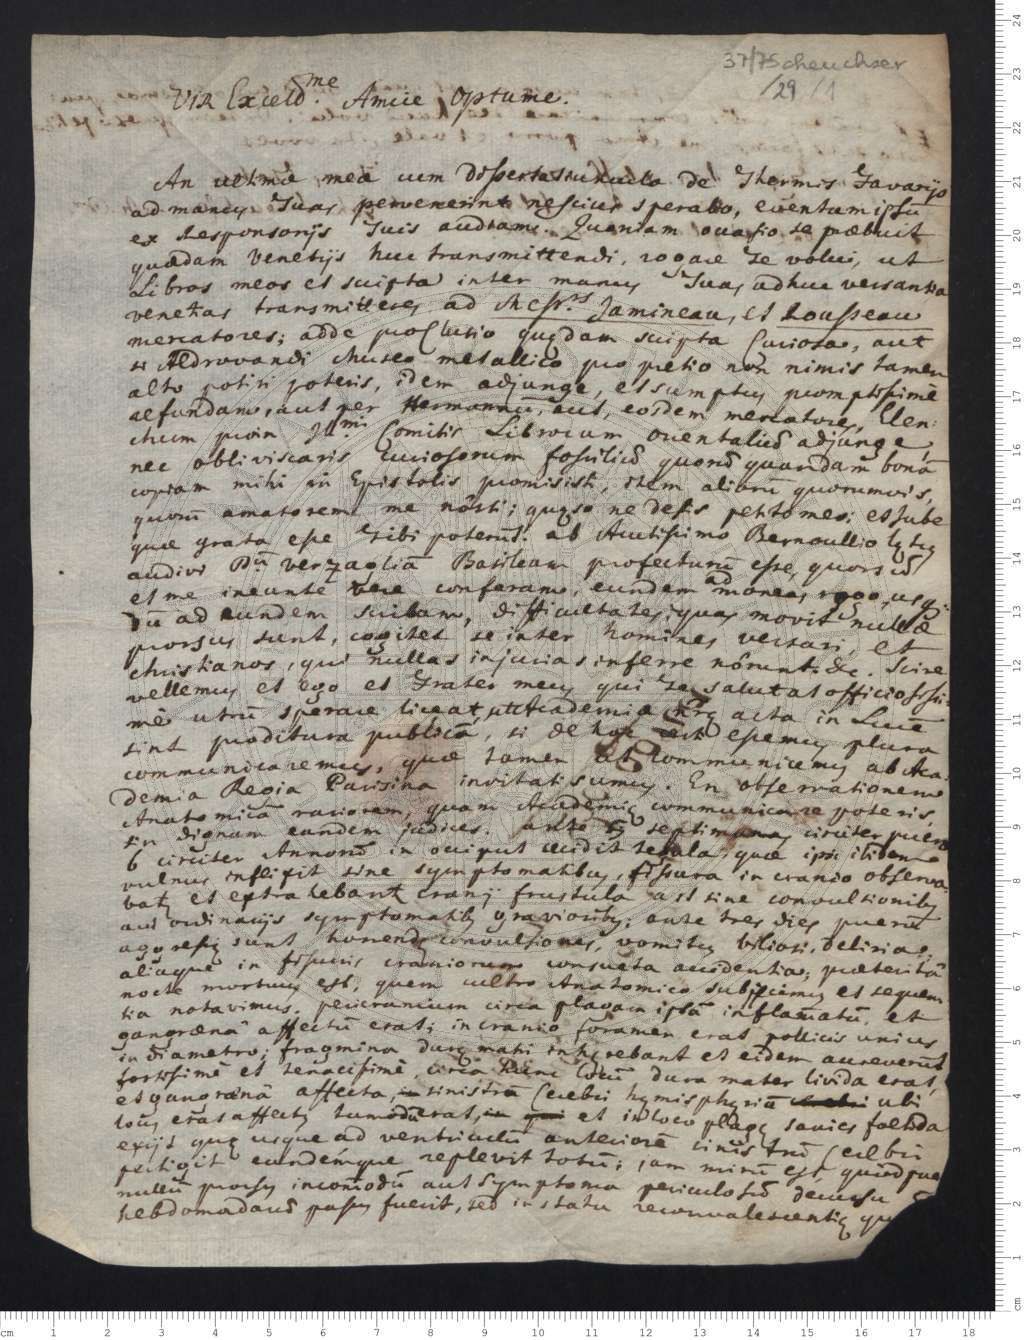 37/Scheuchzer
/29/1
Vir Excell.me Amice Optume.
An ultimæ meæ cum Dissertatiuncula de Thermis Favarijs
ad manus Tuas pervenerint nescius spero, eventum ipsū
ex Responsorijs Tuis audiam. Quoniam occasio se præbuit
quædam Venetijs huc transmittendi, rogare Te volui, ut
Libros meos et scripta inter manus Tuas adhuc versantia
venetias transmitteres ad Mess.rs Jamineau, et Rousseau
mercatores; adde pro lubitu quędam scripta Curiosa, aut
si Aldrovandi Museo metallico pro pretio non nimis tamen
alto potiri poteris, idem adjunge, et sumptus promptissimè
refundam, aut per Hermannū, aut eosdem mercatores, Elen:
chum prom Ill.mi Comitis Librorum orientaliū adjunge,
nec obliviscaris curiosorum fossiliū quorū quandam bonā
copiam mihi in Epistolis promisisti, item aliorū quorumvis,
quorū amatorem me nôsti; quęso ne desis petito meo; et jube
quæ grata esse Tibi poterūt. ab Acutissimo Bernoullio lętus
audivi Dn̄ Verzagliā Basileam profecturū esse, quorsū
et me ineunte vere conferam, eundem ad moneas, rogo, usq.
dū ad eundem scribam, difficultates, quas movit nullæ
prorsus sunt, cogitet se inter homines versari, et
christianos, qui nullas injurias inferre nôrunt. &c. Scire
vellemus et ego et Frater meus qui Te salutat officiosissi:
mè utrū sperare liceat, ut Academia Vrę acta in Lucē
sint proditura publicā, si de hoc certi essemus plura
communicaremus, quæ tamen ut communicemus ab Aca:
demia Regia Parisina invitati sumus. En observationem
Anatomicā rariorem, quam Academię communicare poteris,
sin dignam eandem judices. ante septimanas circiter puero
6 circiter Annorū in occiput cecidit tegula, quæ ipsi ibidem
vulnus inflixit sine symptomatibus, fissura in cranio observa:
batur et extrahebant cranij frustula ast sine convulsionibus
aut ordinarijs symptomatibus gravioribus; ante tres dies puerū
aggressę sunt horrendę convulsiones, vomitus biliosi, deliria,
aliaque in fissuris craniorum consueta accidentia; præteritā
nocte mortuus est, quem cultro Anatomico subjicimus et sequen:
tia notavimus. pericranium circa plagam ipsā inflam̄atū, et
gangrænā affectū erat; in cranio foramen erat pollicis unius
in diametro; fragmina durę matri inhęrebant et eidem accreverūt
fortissimè et tenacissimè, circa hunc locū dura mater livida erat,
et gangrænā affecta, sinistrū Cerebri hęmisphęriū ubi
locus erat affectus tumidū erat, et in loco plagę sanies foetida
exijt quę usque ad ventriculū anteriorē sinistrū Cerebri
pertigit eundemque replevit totū; jam mirū est, quòd puer
nullū prorsus incom̄odū aut symptoma periculosū decursu
hebdomadarū passus fuerit, sed in statu reconvalescentię